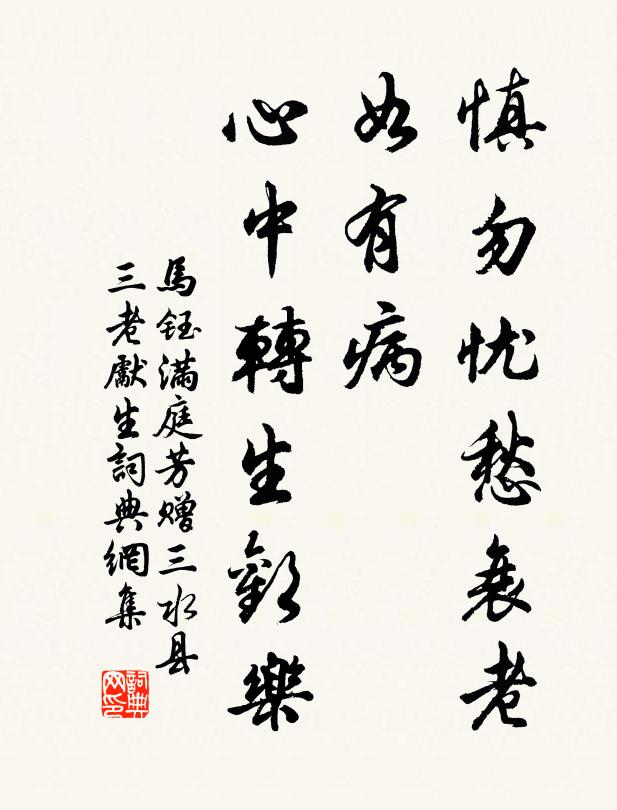 慎勿忧愁衰老
如有病
心中轉生歡樂
馬鈺滿庭芳赠三水县
三老獻生詞典網集
詞典网印